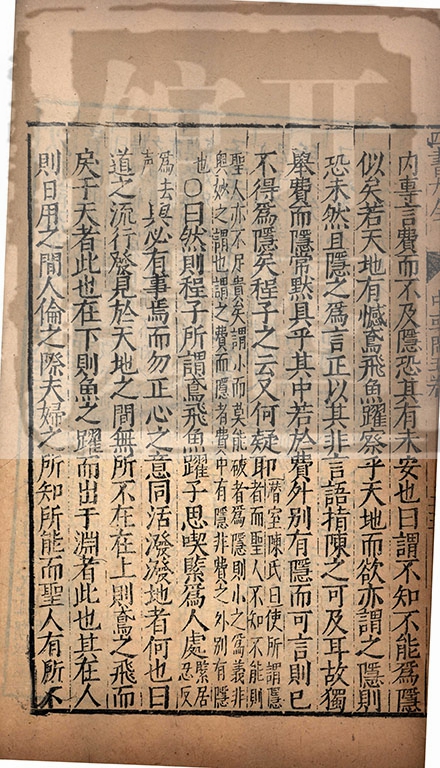 內專言費而不及隱恐其有未安也曰謂不知不能爲隱
似矣若天地有憾鳶飛魚躍察乎天地而欲亦謂之隱則
恐未然且隱之爲言正以其非言語指陳之可及耳故獨
舉費而隱常默具乎其中若於費外別有隱而可言則已
不得爲隱矣程子之云又何疑耶
潛室陳氏曰使所謂隱
者而聖人不知不能則
聖人亦不足貴矣謂小而莫能破者爲隱則小之爲義非
奧妙之謂也謂之費而隱者費中有隱非費之外別有隱
也
○曰然則程子所謂鳶飛魚躍子思喫緊爲人處
緊居
忍反
爲去
声
與必有事焉而勿正心之意同活潑潑地者何也曰
道之流行發見於天地之間無所不在在上則鳶之飛而
戾于天者此也在下則魚之躍而出于淵者此也其在人
則日用之間人倫之際夫婦之所知所能而聖人有所不